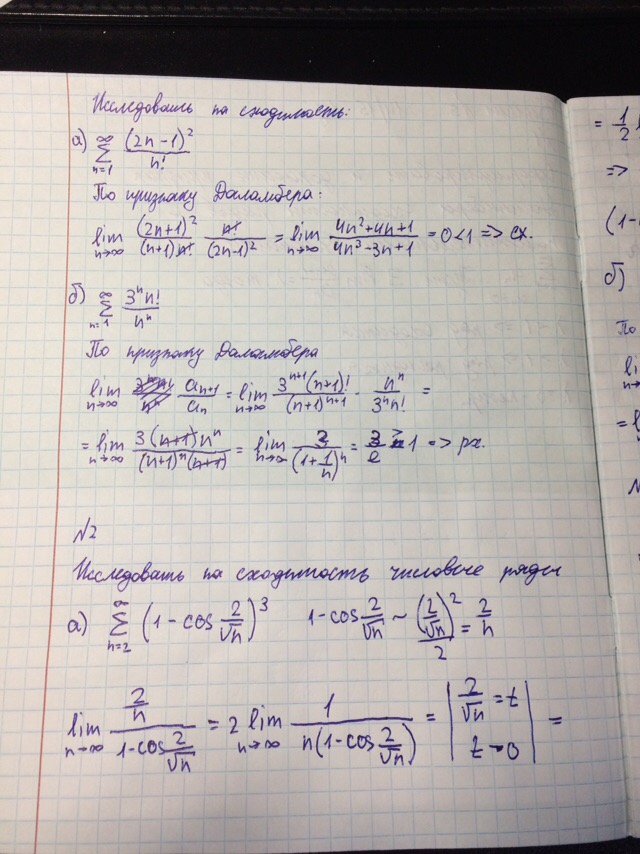 Исследовать на сходимость:
а) ∑_{n=1}^{∞} (2n-1)²/n!
По признаку Даламбера:
lim_{n→∞} (2n+1)²/((n+1)n!) · n!/(2n-1)² = lim_{n→∞} (4n²+4n+1)/(4n³-3n+1) = 0<1 => сх.
б) ∑_{n=1}^{∞} 3ⁿn!/nⁿ
По признаку Даламбера
lim_{n→∞} a_{n+1}/a_n = lim_{n→∞} 3ⁿ⁺¹(n+1)!/(n+1)ⁿ⁺¹ · nⁿ/(3ⁿn!) =
= lim_{n→∞} 3(n+1)nⁿ/((n+1)ⁿ(n+1)) = lim_{n→∞} 3/(1+1/n)ⁿ = 3/e > 1 => рх.
№2
Исследовать на сходимость числовые ряды
а) ∑_{n=2}^{∞} (1-cos 2/√n)³ 1-cos 2/√n ~ (2/√n)²/2 = 2/n
lim_{n→∞} (2/n)/(1-cos 2/√n) = 2 lim_{n→∞} 1/(n(1-cos 2/√n)) = | 2/√n = t t→0 | =
= 1/2
=>
(1-
б)
По
li
= l